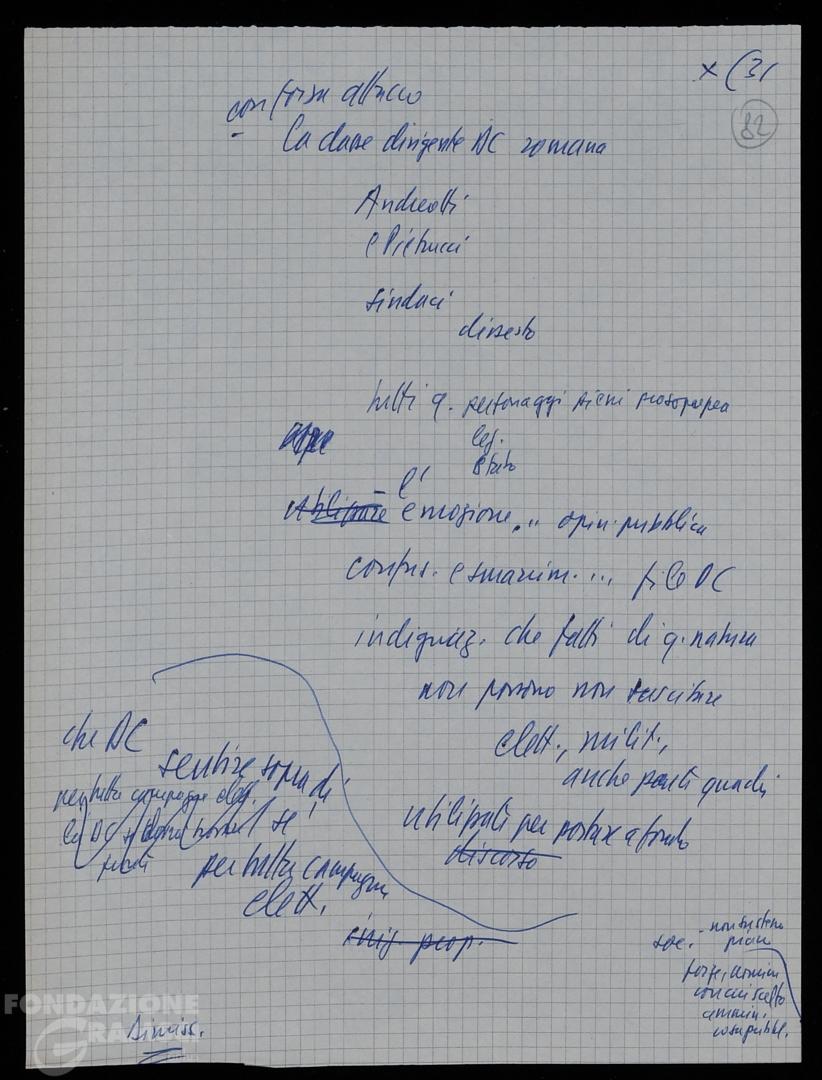 x (31
82
con forza attacco
La classe dirigente DC romana
Andreotti
e Petrucci
sindaci
dissesto
tutti q. personaggi pieni prosopopea
leg.
Stato
l'
utilizzare emozione .. opin. pubblica
confus. e smarrim. ... file DC
indignaz. che fatti di q. natura
non possono non suscitare
elett., milit.,
anche quadri
utilizzati per portare a fondo
discorso
che DC
sentire sopra di
sé
per tutta campagna elett.
la DC
per tutta campagna
elett.
iniz. prop.
soc.
forze, uomini
con cui scelto
ammin.
cosa pubbl.
Dimiss.
FONDAZIONE
GRAMSCI